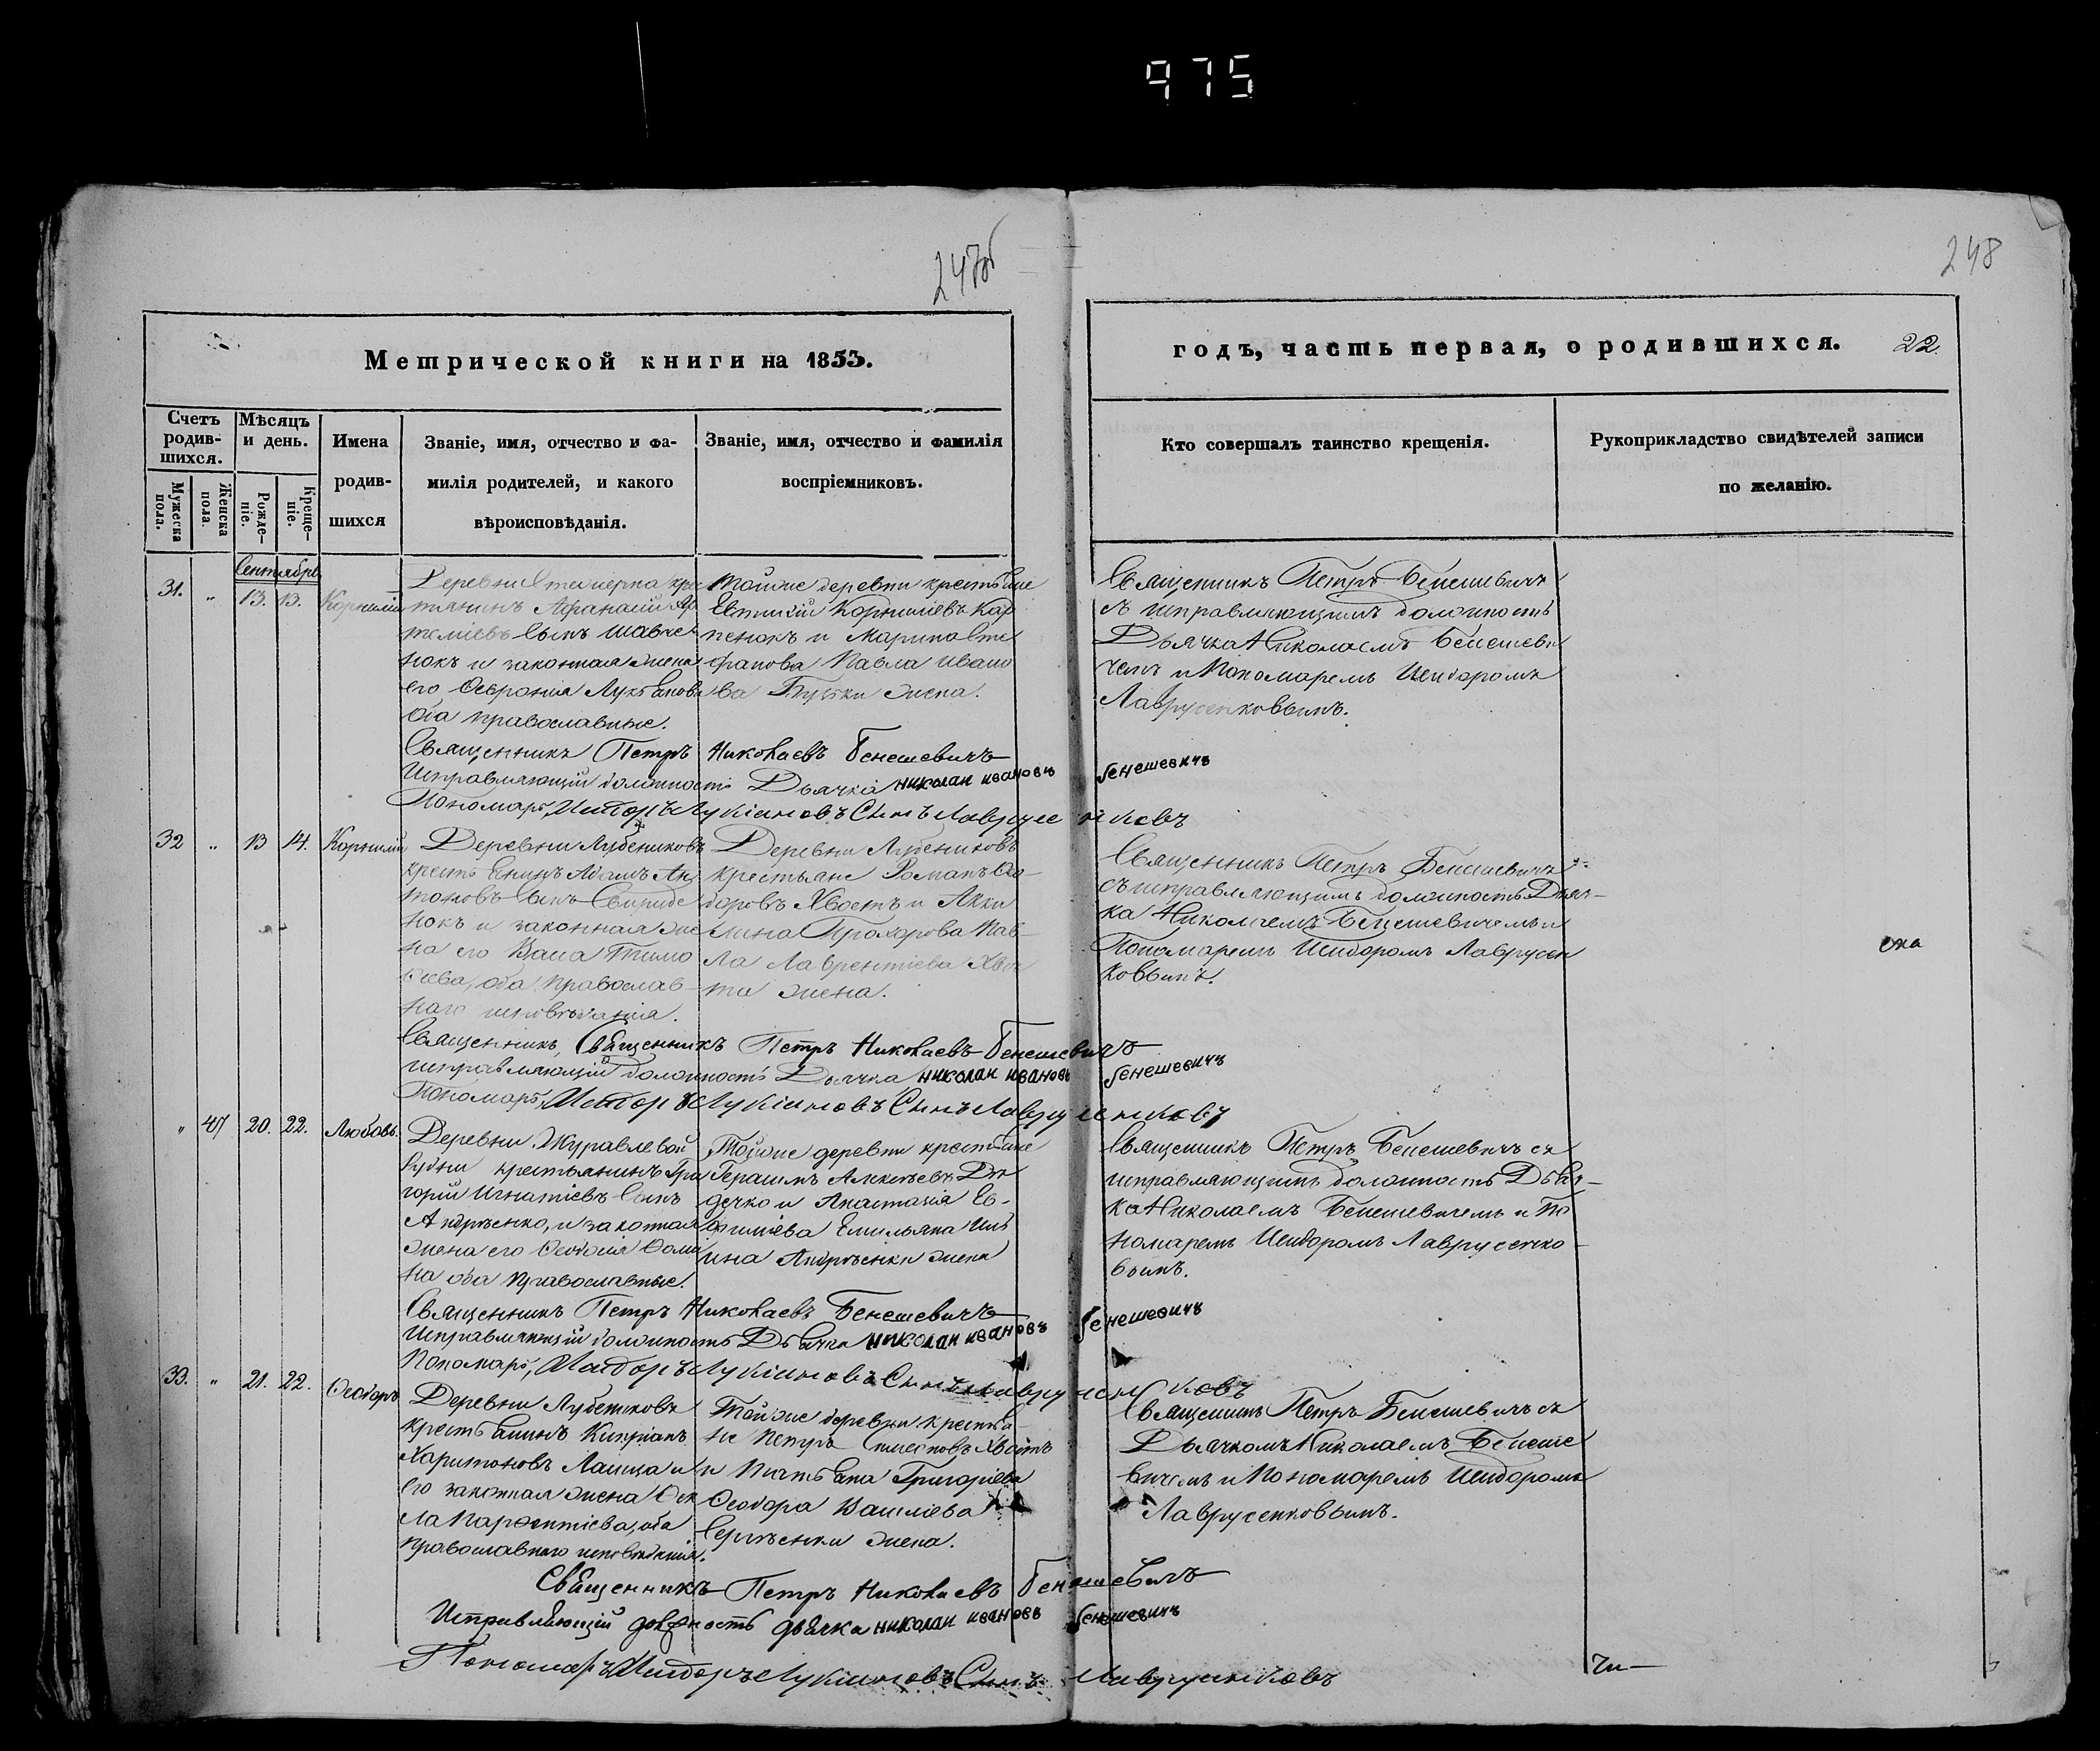 975
247об
248
Метрической книги на 1853.
годъ, часть первая, о родившихся. 22.
Счетъ родив-
шихся.
Мужеска пола.
Женска пола.
Мѣсяцъ и день.
Рожде-
ніе.
Креще-
ніе.
Имена
родив-
шихся
Званіе, имя, отчество и фа-
милія родителей, и какого
вѣроисповѣданія.
Званіе, имя, отчество и фамилія
воспріемниковъ.
Кто совершалъ таинство крещенія.
Рукоприкладство свидѣтелей записи
по желанію.
Сентябрь
31. " 13. 13. Корнилій
Деревни крес
тьянинъ Афанасій Ар
теміевъ сынъ Шавче
нокъ и законная жена
его Февронія Лукьянова
оба православные.
Тойже деревни крестьяне
Евтихій Корниліевъ Кар
пенокъ и Марина Сте
фанова Павла Ивано
ва жена.
Священникъ Петръ Бенешевичъ
съ исправляющимъ должность
Дьячка Николаемъ Бенешеви
чемъ и Пономаремъ Исидоромъ
Лаврусенковымъ.
Священникъ Петръ Николаевъ Бенешевичъ
Исправляющій должность Дьячка николаи ивановъ бенешевичъ
Пономарь, Исидоръ Лукіановъ Сынъ Лаврусенковъ
32 " 13 14. Корнилій
Деревни Лубениковъ
крестьянинъ Адамъ Ан
тоновъ сынъ Свириде
нокъ и законная же
на его Васа Тимо
феева, оба православ-
наго исповѣданія.
Деревни Лубениковъ
крестьяне Романъ Фео
доровъ Хвостъ и Аки
лина Прохорова Пав
ла Лаврентіева Хвос
та жена.
Священникъ Петръ Бенешевичъ
съ исправляющимъ должность Дьяч-
ка Николаемъ Бенешевичемъ и
Пономаремъ Исидоромъ Лаврусен
ковымъ.
Священникъ, Священникъ Петръ Николаевъ Бенешевичъ
исправляющій должность Дьячка николаи ивановъ бенешевичъ
Пономарь, Исидоръ Лукіановъ Сынъ Лаврусенковъ
" 47 20. 22. Любовь.
Деревни Журавлевой
Будни крестьянинъ Гри
горій Игнатіевъ сынъ
Андрѣенко, и законная
жена его Феодосія Фоми
на оба православные.
Тойже деревни крестьяне
Герасимъ Алексѣевъ Дѣ
дечко и Анастасія Ев-
фиміева Емильяна Иль
ина Андрѣенки жена
Священникъ Петръ Бенешевичъ съ
исправляющимъ должность Дьяч-
ка Николаемъ Бенешевичемъ и По
номаремъ Исидоромъ Лаврусенко-
вымъ.
Священникъ Петръ Николаевъ Бенешевичъ
Исправляющій должность Дьячка николаи ивановъ бенешевичъ
Пономарь, Исидоръ Лукіановъ Сынъ Лаврусенковъ
33. " 21. 22. Феодоръ
Деревни Лубениковъ
крестьянинъ Кипріанъ
Харитоновъ Лапица и
его законная жена Фек
ла Парфентіева, оба
православнаго исповѣданія.
Тойже деревни крестья-
не Петръ Хвостъ
и Татьяна Григоріева
Феодора Василіева
Сергѣенки жена.
Священникъ Петръ Бенешевичъ съ
Дьячкомъ Николаемъ Бенеше
вичемъ и Пономаремъ Исидоромъ
Лаврусенковымъ.
Священникъ Петръ Николаевъ Бенешевичъ
Исправляющій должность дьячка николаи ивановъ бенешевичъ
Пономарь Исидоръ Лукіановъ Сынъ Лаврусенковъ